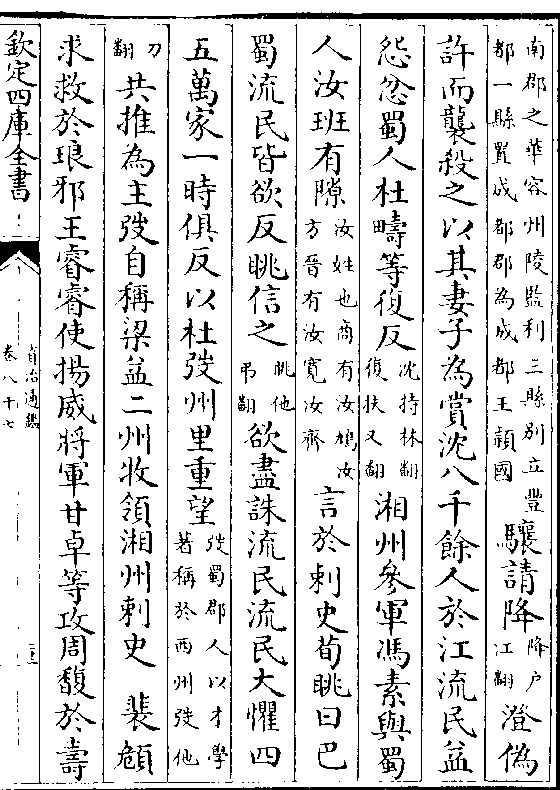 南郡之華容州陵監利三縣別立豐
都一縣置成都郡為成都王穎國
驤請降
降户
江翻
澄偽
許而襲殺之以其妻子為賞沈八千餘人於江流民益
怨忿蜀人杜疇等復反
沈持林翻
復扶又翻
湘州參軍馮素與蜀
人汝班有隙
汝姓也商有汝鳩汝
方晉有汝寛汝齊
言於刺史荀眺曰巴
蜀流民皆欲反眺信之
眺他
弔翻
欲盡誅流民流民大懼四
五萬家一時俱反以杜弢州里重望
弢蜀郡人以才學
著稱於西州弢他
刀
翻
共推為主弢自稱梁益二州牧領湘州刺史　裴頠
求救於琅邪王睿睿使揚威將軍甘卓等攻周馥於壽
欽定四庫全書
資治通鑑
卷八十七